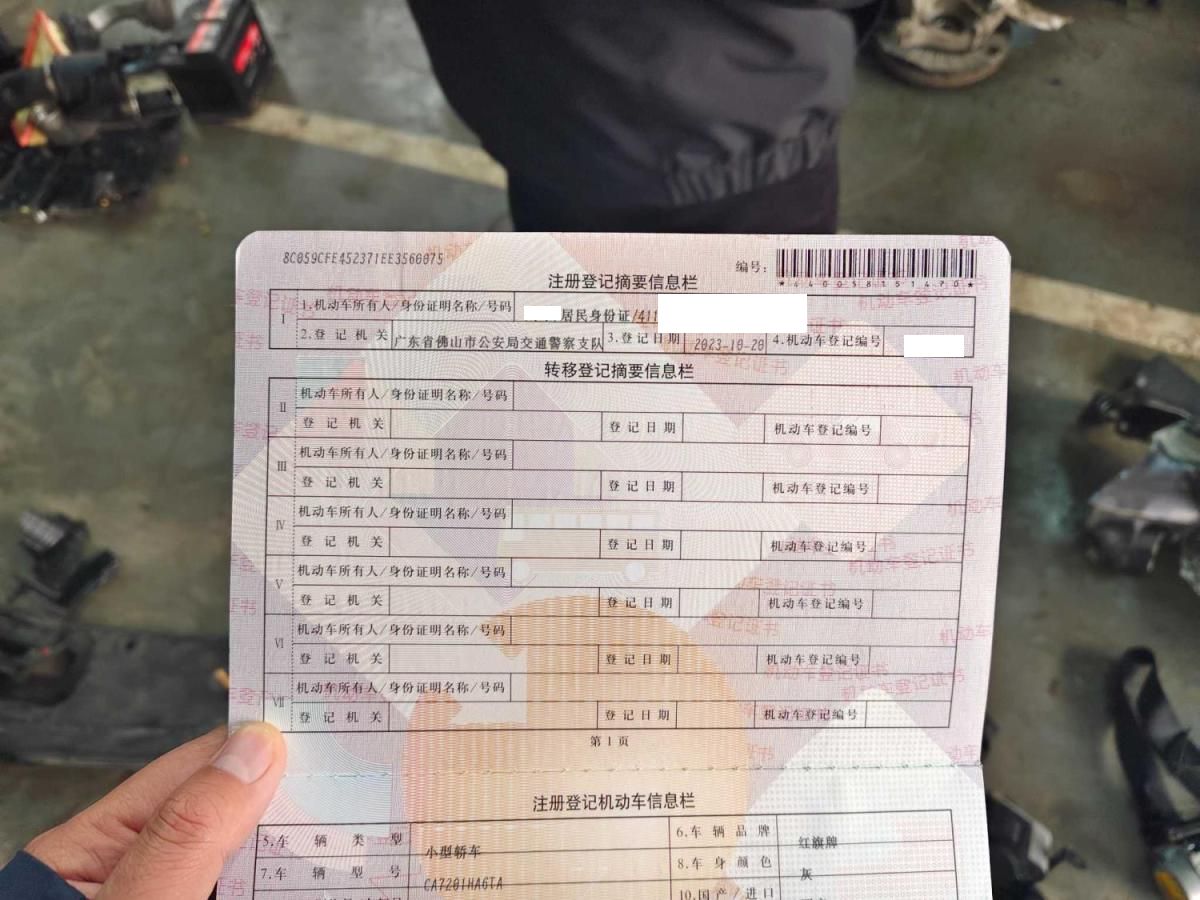 8C059CFE452371EE3560075
编号:
*440058151470*
注册登记摘要信息栏
I 1.机动车所有人/身份证明名称/号码 居民身份证/411
2.登记机关 广东省佛山市公安局交通警察支队 3.登记日期 2023-10-20 4.机动车登记编号
转移登记摘要信息栏
II 机动车所有人/身份证明名称/号码
登记机关 登记日期 机动车登记编号
III 机动车所有人/身份证明名称/号码
登记机关 登记日期 机动车登记编号
IV 机动车所有人/身份证明名称/号码
登记机关 登记日期 机动车登记编号
V 机动车所有人/身份证明名称/号码
登记机关 登记日期 机动车登记编号
VI 机动车所有人/身份证明名称/号码
登记机关 登记日期 机动车登记编号
VII 机动车所有人/身份证明名称/号码
登记机关 登记日期 机动车登记编号
第1页
注册登记机动车信息栏
5.车辆类型 小型轿车 6.车辆品牌 红旗牌
7.车辆型号 CA7201HA6TA 8.车身颜色 灰
10.国产/进口